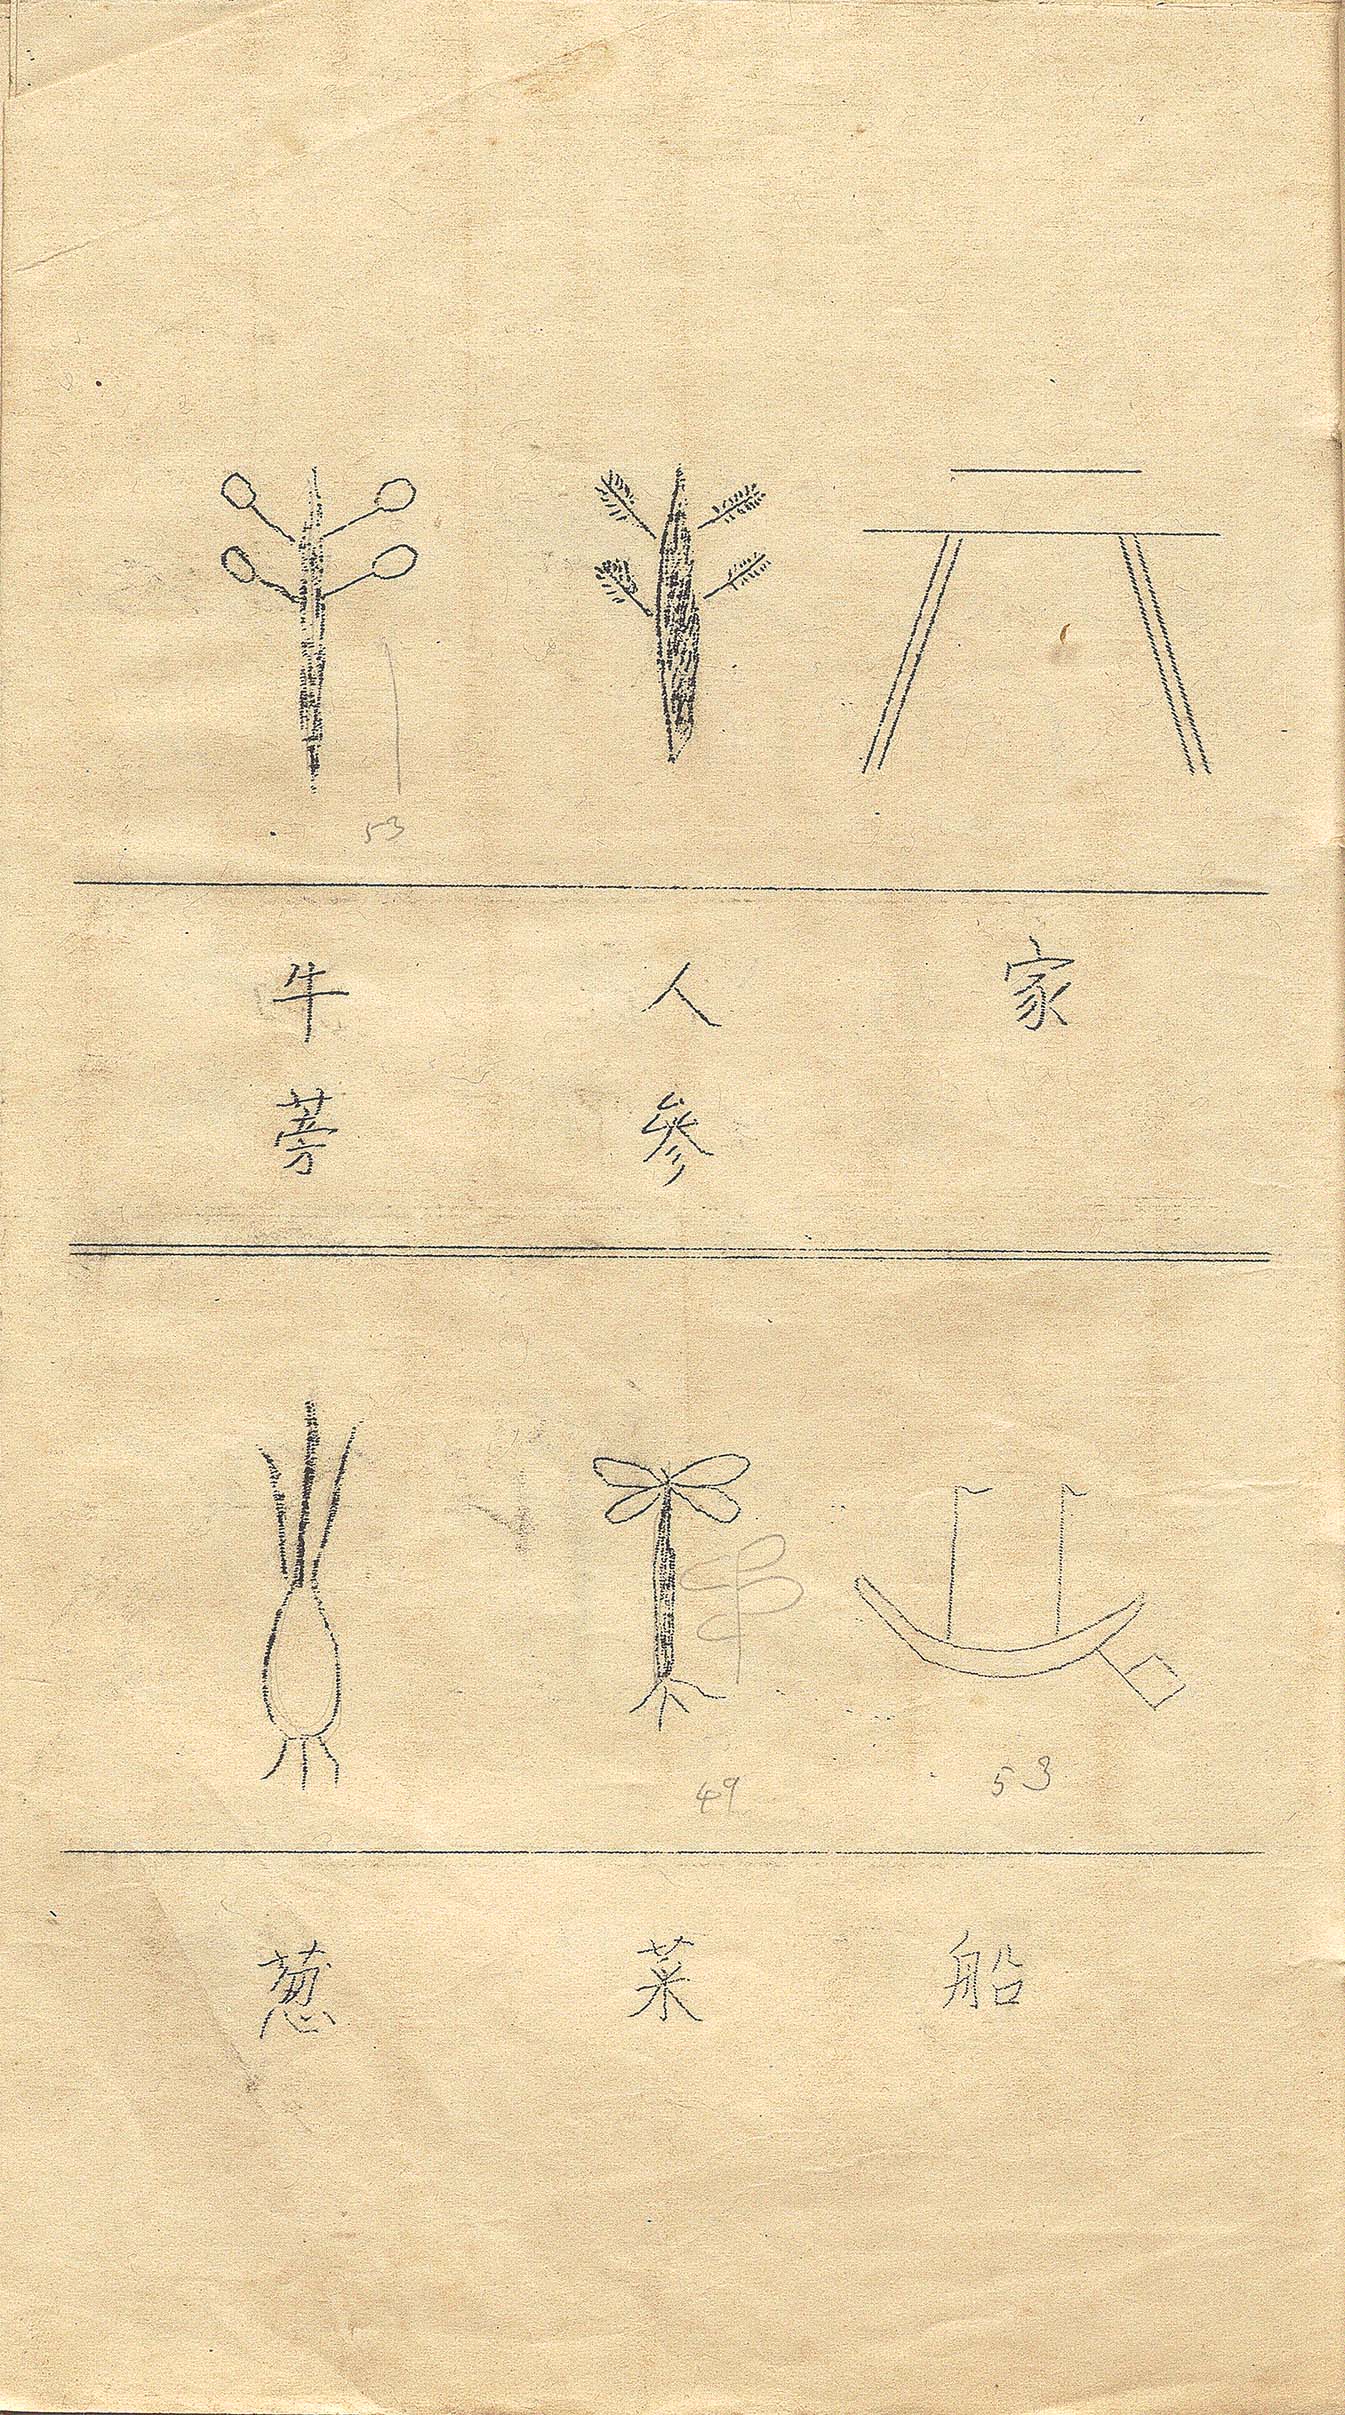 家
人參
牛蒡
53
船
菜
葱
53
49